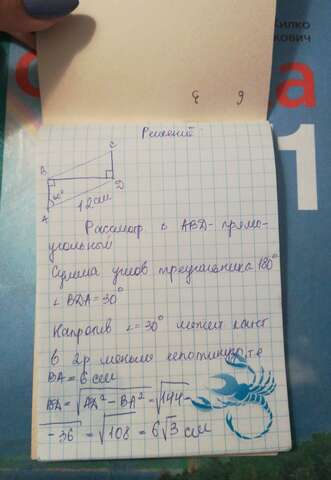 илко
кович
а
1
9 6
Решение:
B
C
60°
D
A
12 см
Рассмотр ∆ ABD - прямо-
угольный
Сумма углов треугольника 180°
∠ BDA = 30°
Напротив ∠ = 30° лежит катет
в 2р меньше гипотенузы, т.е
BA = 6 см
BD = √AD² - BA² = √144 -
- 36 = √108 = 6√3 см